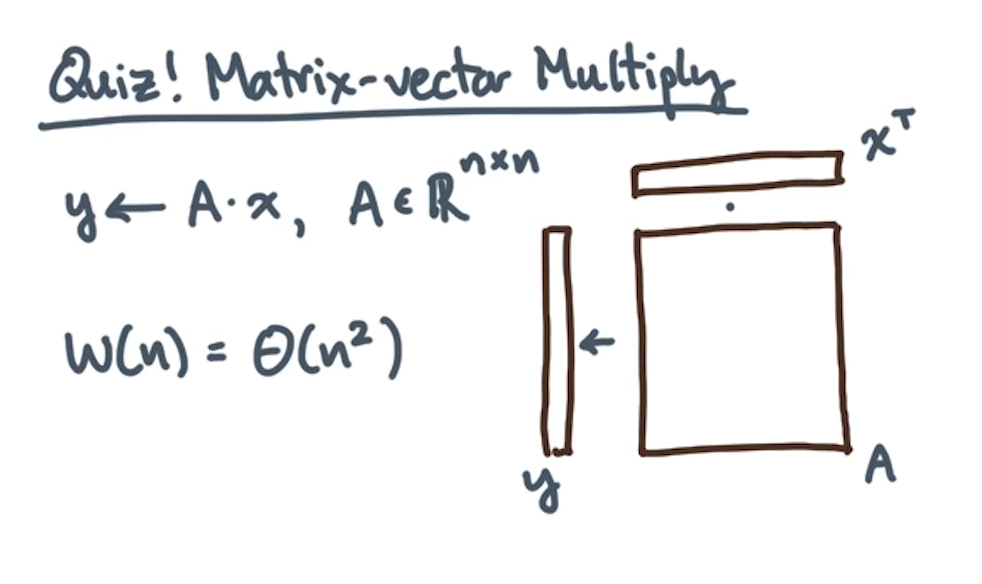 Quiz! Matrix-vector Multiply
xᵀ
y ← A · x, A ∈ ℝⁿˣⁿ
·
←
W(n) = Θ(n²)
y
A